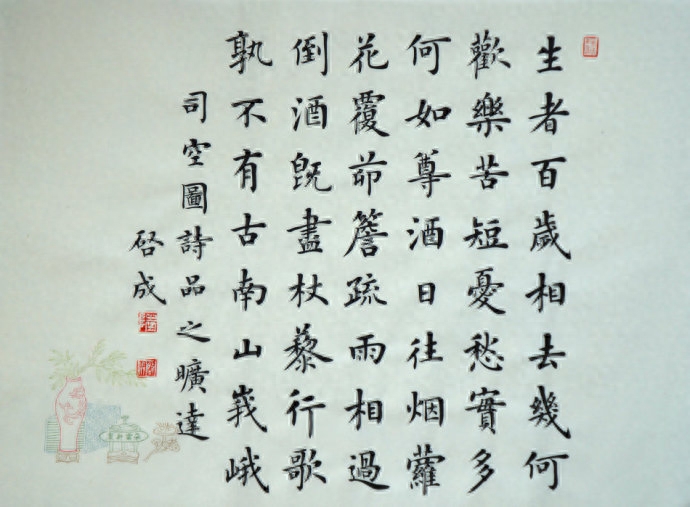 生者百歲相去幾何
歡樂苦短憂愁實多
何如尊酒日往烟蘿
花覆茆簷疏雨相過
倒酒既盡杖藜行歌
孰不有古南山峩峨
司空圖詩品之曠達
啓成